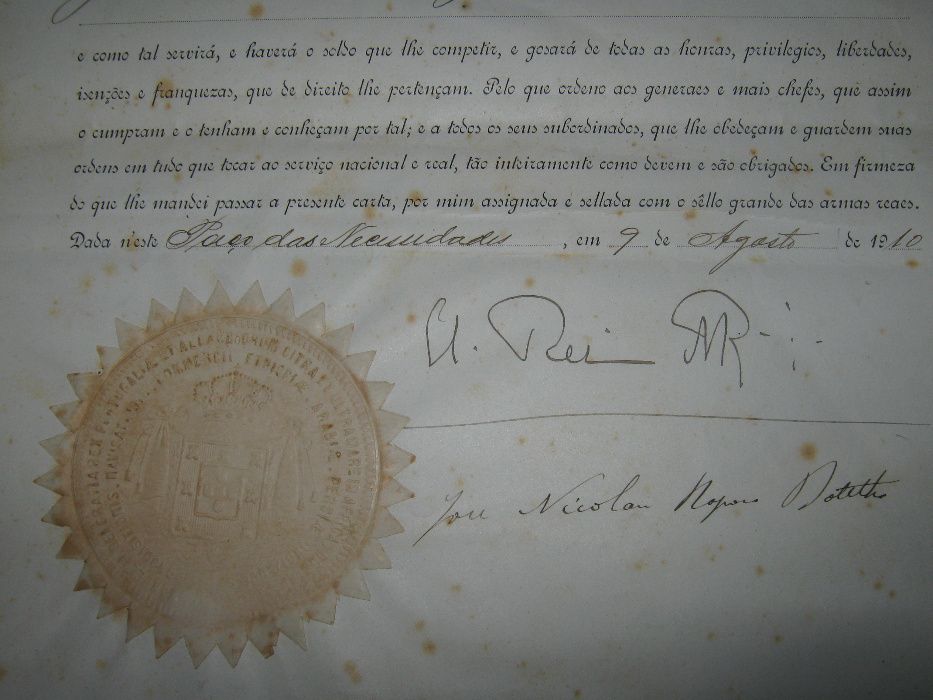 e como tal servirá, e haverá o soldo que lhe competir, e gosará de todas as honras, privilegios, liberdades,
isenções e franquezas, que de direito lhe pertençam. Pelo que ordeno aos generaes e mais chefes, que assim
o cumpram e o tenham e conheçam por tal; e a todos os seus subordinados, que lhe obedeçam e guardem suas
ordens em tudo que tocar ao serviço nacional e real, tão inteiramente como devem e são obrigados. Em firmeza
do que lhe mandei passar a presente carta, por mim assignada e sellada com o sêllo grande das armas reaes.
Dada n'este Paço das Necessidades, em 9 de Agosto de 1910
El Rei
José Nicolau Raposo Botelho
PORTUGALIÆ ET ALGARBIORUM CITRA ET ULTRA MARE
COMMERCII, ETHIOPIÆ, ARABIÆ, PERSIÆ